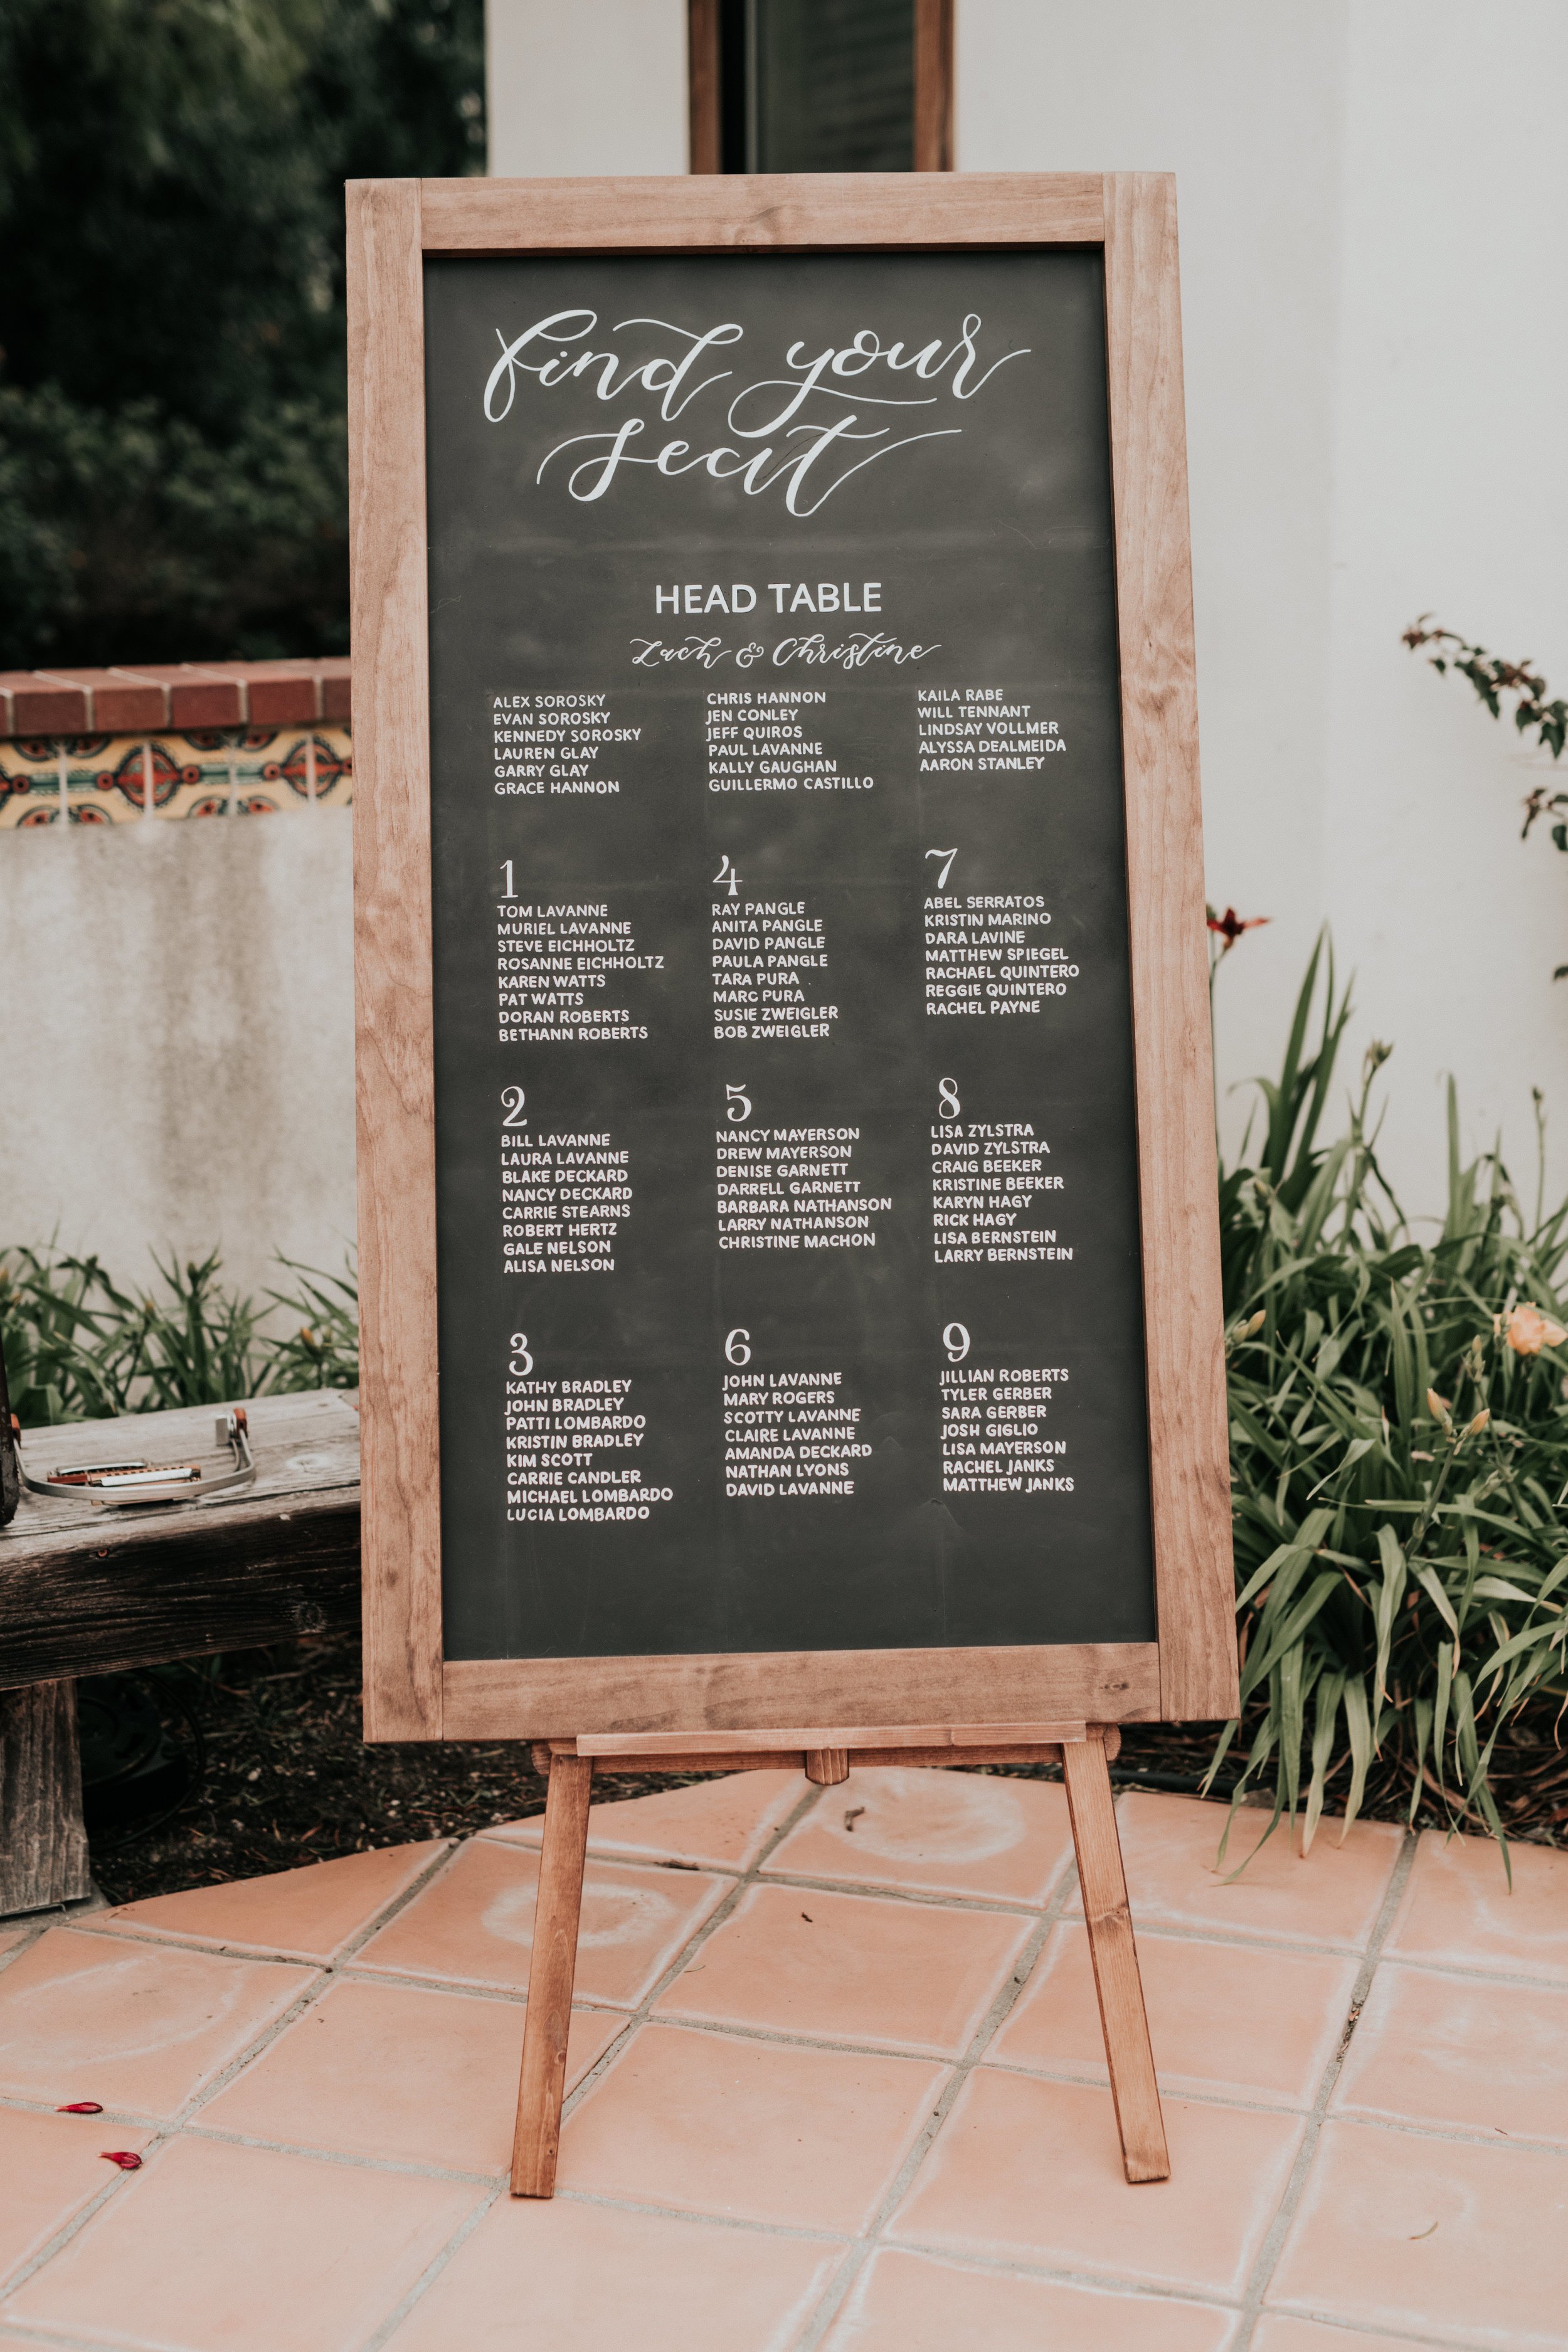 find your
seat
HEAD TABLE
Zach & Christine
ALEX SOROSKY
EVAN SOROSKY
KENNEDY SOROSKY
LAUREN GLAY
GARRY GLAY
GRACE HANNON
CHRIS HANNON
JEN CONLEY
JEFF QUIROS
PAUL LAVANNE
KALLY GAUGHAN
GUILLERMO CASTILLO
KAILA RABE
WILL TENNANT
LINDSAY VOLLMER
ALYSSA DEALMEIDA
AARON STANLEY
1
TOM LAVANNE
MURIEL LAVANNE
STEVE EICHHOLTZ
ROSANNE EICHHOLTZ
KAREN WATTS
PAT WATTS
DORAN ROBERTS
BETHANN ROBERTS
2
BILL LAVANNE
LAURA LAVANNE
BLAKE DECKARD
NANCY DECKARD
CARRIE STEARNS
ROBERT HERTZ
GALE NELSON
ALISA NELSON
3
KATHY BRADLEY
JOHN BRADLEY
PATTI LOMBARDO
KRISTIN BRADLEY
KIM SCOTT
CARRIE CANDLER
MICHAEL LOMBARDO
LUCIA LOMBARDO
4
RAY PANGLE
ANITA PANGLE
DAVID PANGLE
PAULA PANGLE
TARA PURA
MARC PURA
SUSIE ZWEIGLER
BOB ZWEIGLER
5
NANCY MAYERSON
DREW MAYERSON
DENISE GARNETT
DARRELL GARNETT
BARBARA NATHANSON
LARRY NATHANSON
CHRISTINE MACHON
6
JOHN LAVANNE
MARY ROGERS
SCOTTY LAVANNE
CLAIRE LAVANNE
AMANDA DECKARD
NATHAN LYONS
DAVID LAVANNE
7
ABEL SERRATOS
KRISTIN MARINO
DARA LAVINE
MATTHEW SPIEGEL
RACHAEL QUINTERO
REGGIE QUINTERO
RACHEL PAYNE
8
LISA ZYLSTRA
DAVID ZYLSTRA
CRAIG BEEKER
KRISTINE BEEKER
KARYN HAGY
RICK HAGY
LISA BERNSTEIN
LARRY BERNSTEIN
9
JILLIAN ROBERTS
TYLER GERBER
SARA GERBER
JOSH GIGLIO
LISA MAYERSON
RACHEL JANKS
MATTHEW JANKS